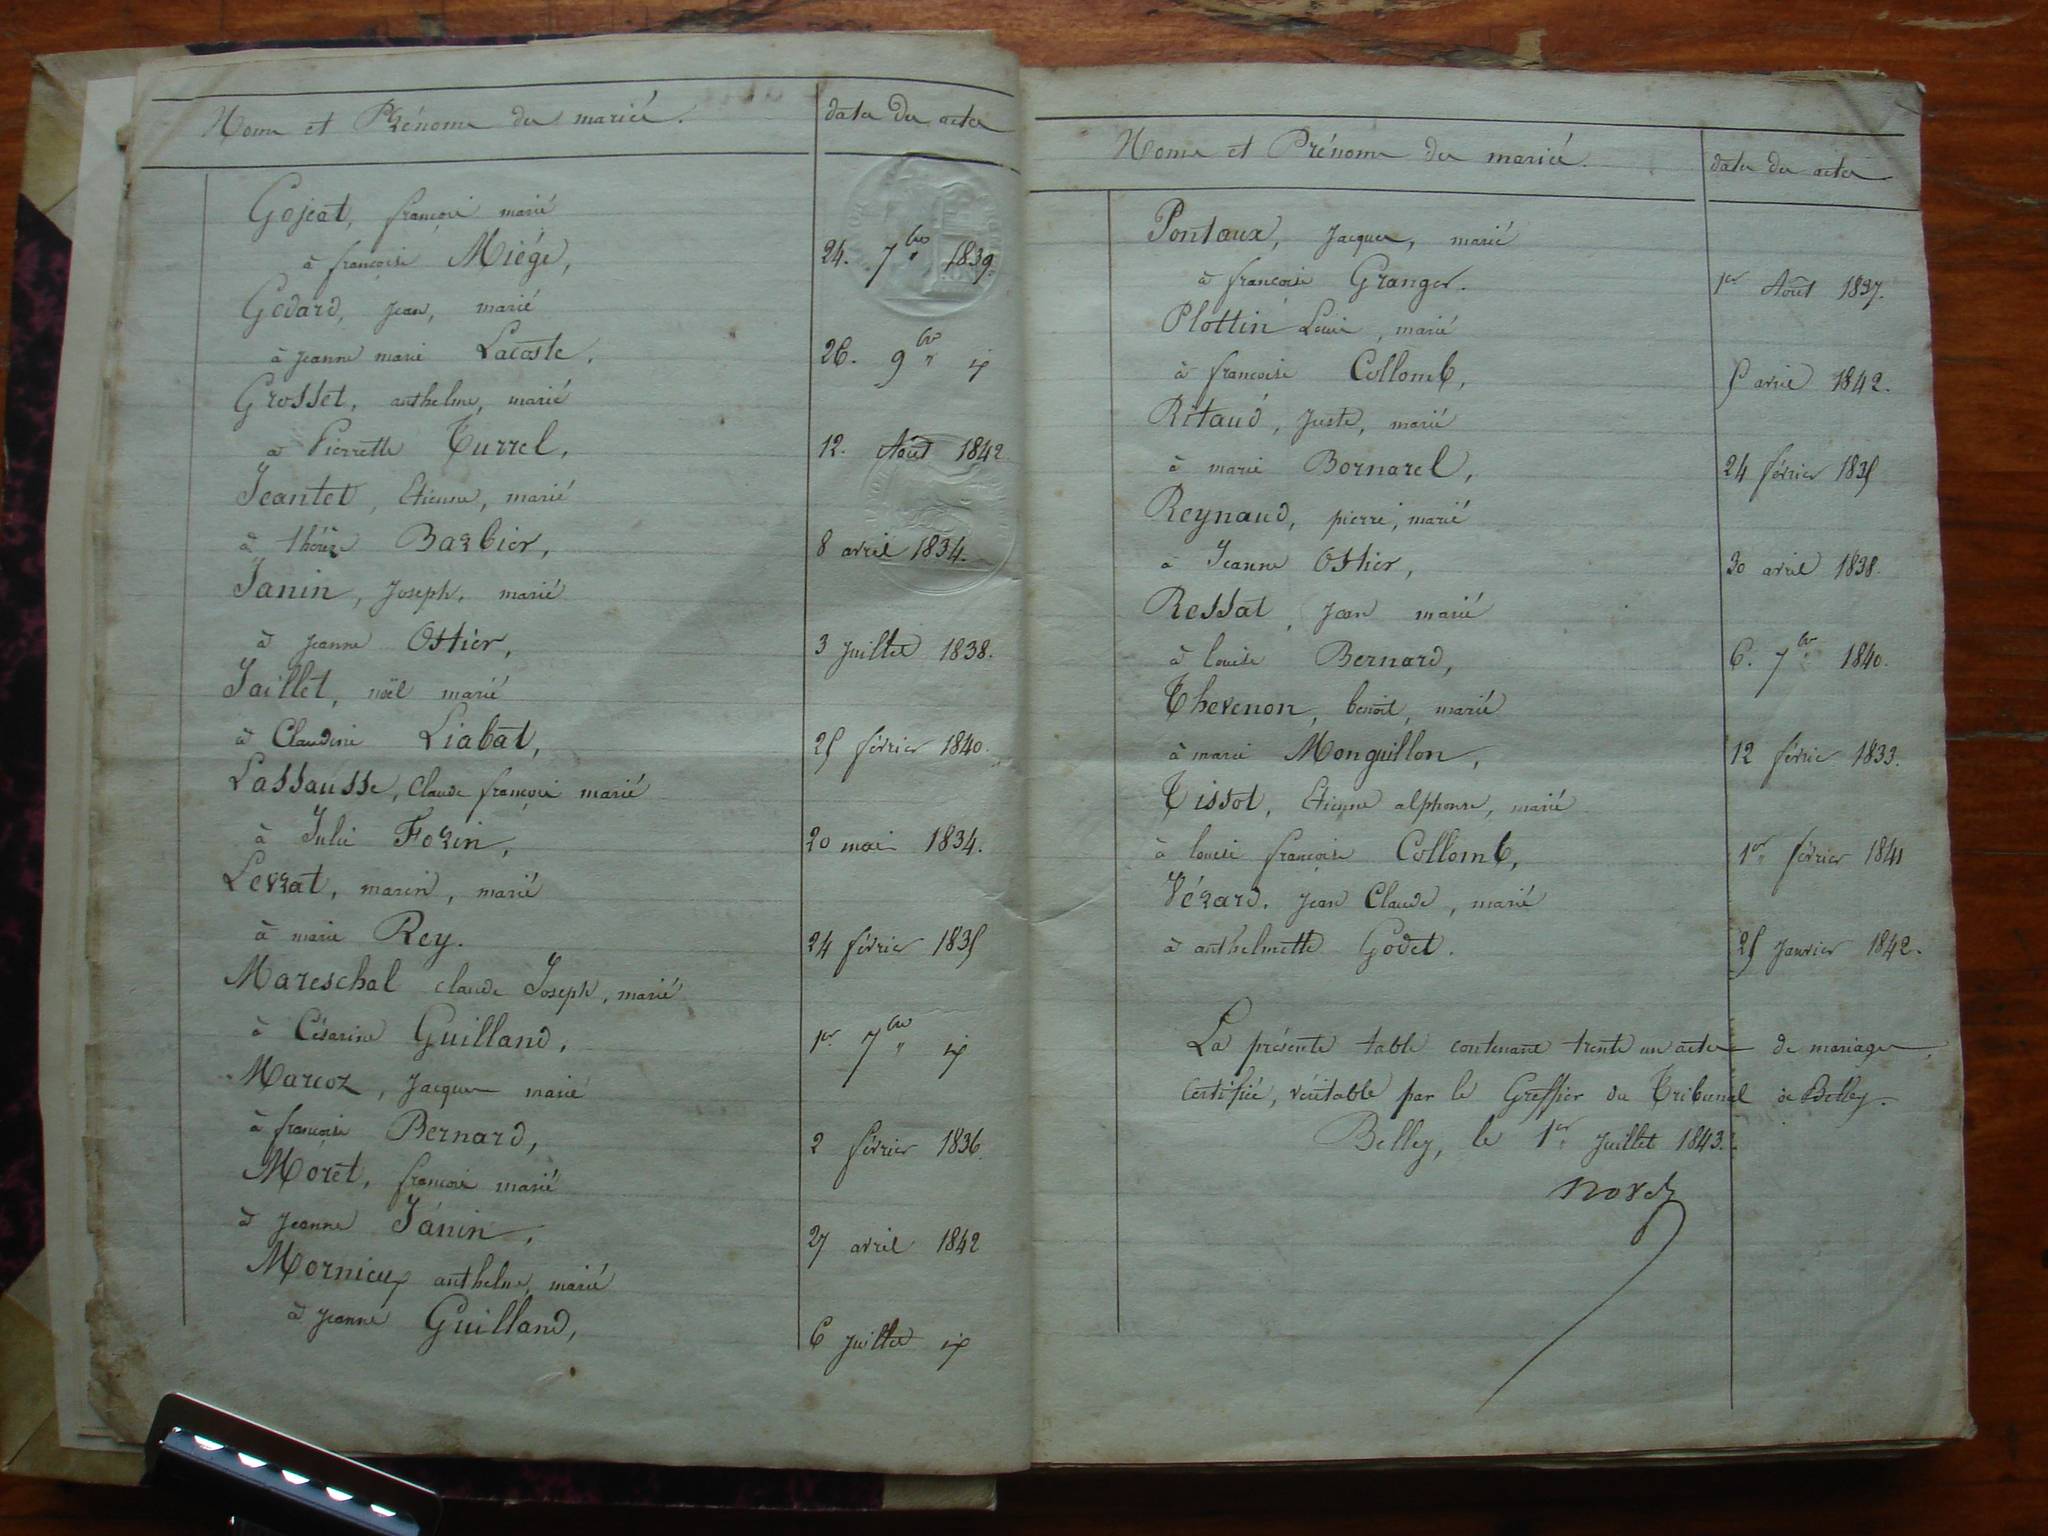 Noms et Prénoms des mariés.
dates des actes
Gojeat, françois marié
à françoise Miége,
24. 7bre 1839.
Godard, Jean, marié
à jeanne marie Lacoste,
26. 9bre
Grosset, anthelme, marié
à Pierrette Turrel,
12. Août 1842
Jeantet, Etienne, marié
à thérèze Barbier,
8 avril 1834.
Janin, Joseph, marié
à jeanne Ostier,
3 Juillet 1838.
Jaillet, noël marié
à Claudine Liabat,
25 février 1840.
Lassausse, Claude françois marié
à Julie Forin,
20 mai 1834.
Levrat, marin, marié
à marie Rey.
24 février 1835
Mareschal claude Joseph, marié
à Césarine Guilland,
1er 7bre
Marcoz, Jacques marié
à françoise Bernard,
2 février 1836.
Moret, françois marié
à Jeanne Janin,
27 avril 1842
Mornieux anthelme, marié
à Jeanne Guilland,
6 Juillet
Noms et Prénoms des mariés.
dates des actes
Pontaux, Jacques, marié
à françoise Granger.
1er Août 1837.
Plottin Louis, marié
à françoise Collomb,
5 avril 1842.
Ritaud, Juste, marié
à marie Bornarel,
24 février 1835
Reynaud, pierre, marié
à Jeanne Ostier,
30 avril 1838.
Ressat, Jean marié
à louise Bernard,
6. 7bre 1840.
Thevenon, benoit, marié
à marie Monguillon,
12 février 1833.
Tissot, Etienne alphonse, marié
à louise françoise Collomb,
1er février 1841
Vérard, Jean Claude, marié
à anthelmette Godet.
25 Janvier 1842.
La présente table contenant trente un actes de mariages,
certifiée, véritable par le Greffier du Tribunal de Belley.
Belley, le 1er Juillet 1843.